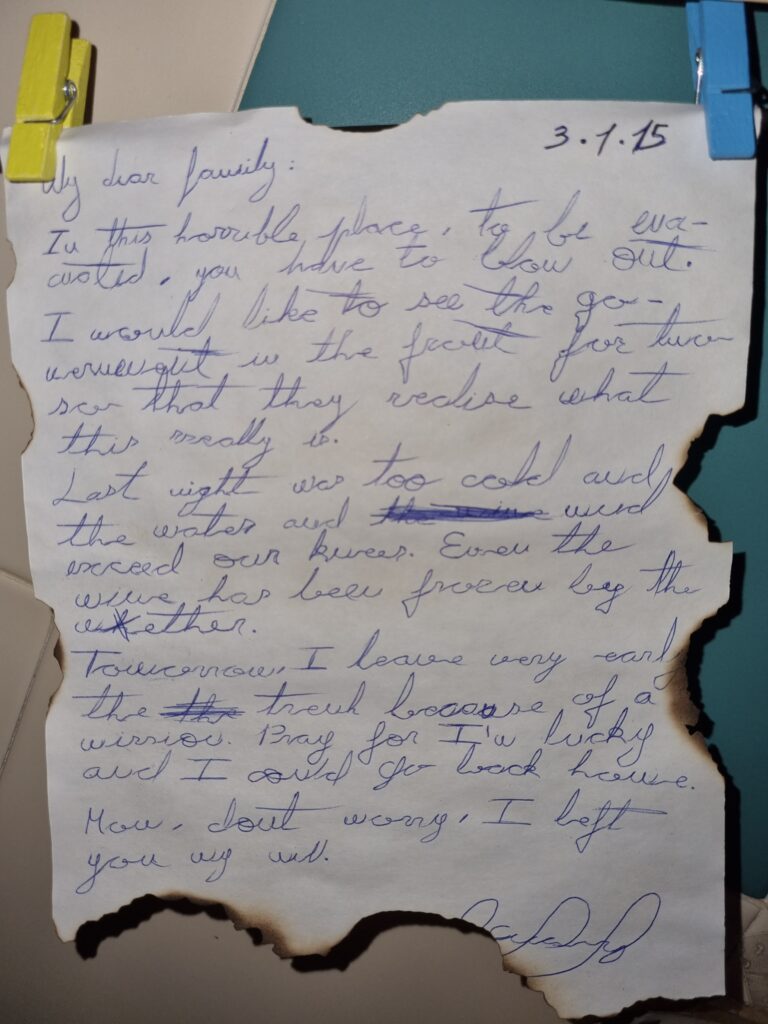 3.1.15
My dear family:
In this horrible place, to be eva-
cuated, you have to blow out.
I would like to see the go-
vernment in the front for two
so that they realise what
this really is.
Last night was too cold and
the water and mud
exceed our knees. Even the
wine has been frozen by the
wether.
Tomorrow, I leave very early
the trenk because of a
mission. Pray for I'm lucky
and I could go back house.
Mom, dont worry, I left
you my will.